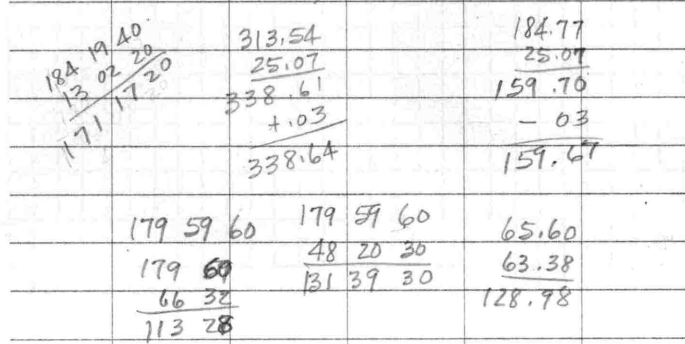 184 19 40
13 02 20
171 17 20
313.54
25.07
338.61
+.03
338.64
184.77
25.07
159.70
- 03
159.67
179 59 60
179 60
66 32
113 28
179 59 60
48 20 30
131 39 30
65.60
63.38
128.98